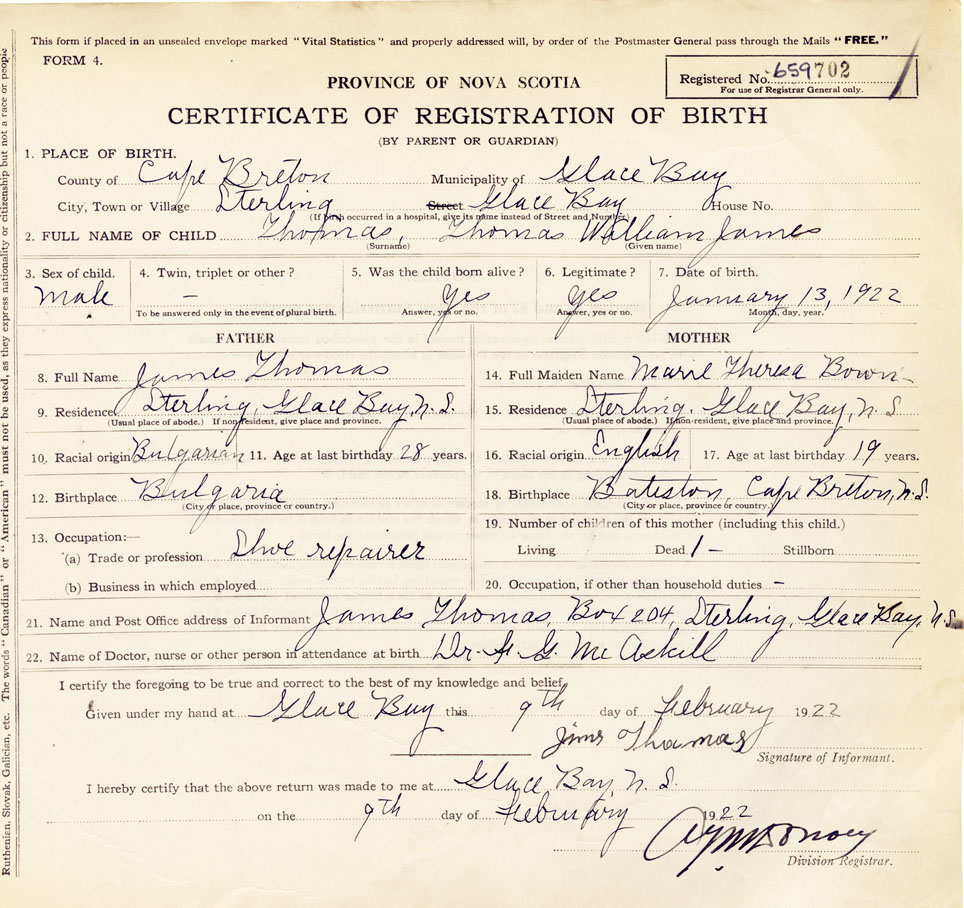 This form if placed in an unsealed envelope marked "Vital Statistics" and properly addressed will, by order of the Postmaster General pass through the Mails "FREE."
FORM 4.
PROVINCE OF NOVA SCOTIA
Registered No. 659702
For use of Registrar General only.
CERTIFICATE OF REGISTRATION OF BIRTH
(BY PARENT OR GUARDIAN)
1. PLACE OF BIRTH.
County of Cape Breton Municipality of Glace Bay
City, Town or Village Sterling Street Glace Bay House No.
(If birth occurred in a hospital, give its name instead of Street and Number)
2. FULL NAME OF CHILD Thomas, Thomas William James
(Surname) (Given name)
3. Sex of child. 4. Twin, triplet or other? 5. Was the child born alive? 6. Legitimate? 7. Date of birth.
Male – Yes Yes January 13, 1922
To be answered only in the event of plural birth. Answer, yes or no. Answer, yes or no. Month, day, year.
FATHER MOTHER
8. Full Name James Thomas 14. Full Maiden Name Marie Theresa Bown
9. Residence Sterling, Glace Bay, N.S. 15. Residence Sterling. Glace Bay, N.S
(Usual place of abode.) If non-resident, give place and province. (Usual place of abode.) If non-resident, give place and province.
10. Racial origin Bulgarian 11. Age at last birthday 28 years. 16. Racial origin English 17. Age at last birthday 19 years.
12. Birthplace Bulgaria 18. Birthplace Bateston, Cape Breton, N.S.
(City or place, province or country.) (City or place, province or country.)
19. Number of children of this mother (including this child.)
13. Occupation:—
(a) Trade or profession Shoe repairer Living Dead 1 – Stillborn
(b) Business in which employed 20. Occupation, if other than household duties –
21. Name and Post Office address of Informant James Thomas, Box 204, Sterling, Glace Bay, N.S.
22. Name of Doctor, nurse or other person in attendance at birth Dr. G. McAskill
I certify the foregoing to be true and correct to the best of my knowledge and belief.
Given under my hand at Glace Bay this 9th day of February 1922
Jims Thomas
Signature of Informant.
I hereby certify that the above return was made to me at Glace Bay, N.S.
on the 9th day of February 1922
Division Registrar.
Ruthenian, Slovak, Galician, etc. The words "Canadian" or "American" must not be used, as they express nationality or citizenship but not a race or people